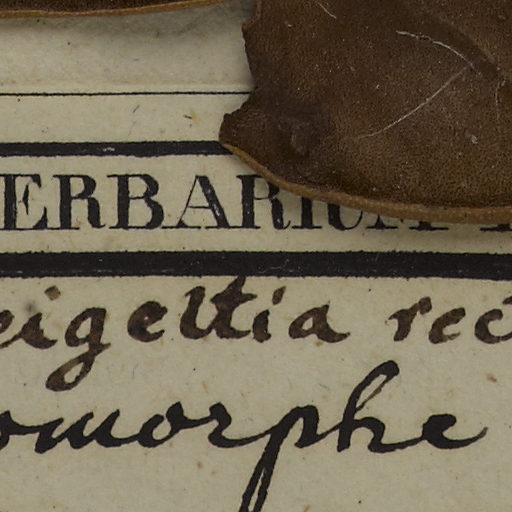 ERBARIUM
eigeltia rec
omorphe